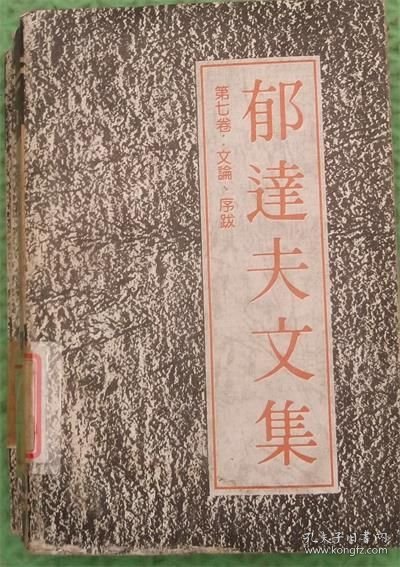 郁達夫文集
第七卷·文論、序跋
孔夫子旧书网
www.kongfz.com